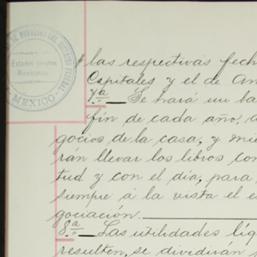 Estados Unidos
Mexicanos
MEXICO
las respectivas fech
Capitales y el de
7ª Se hará un
fin de cada año,
gocios de la casa, y
rán llevar los libros con
tud y con el día, para
siempre á la vista el e
gociación.
8ª Las utilidades líq
resulten, se dividirán